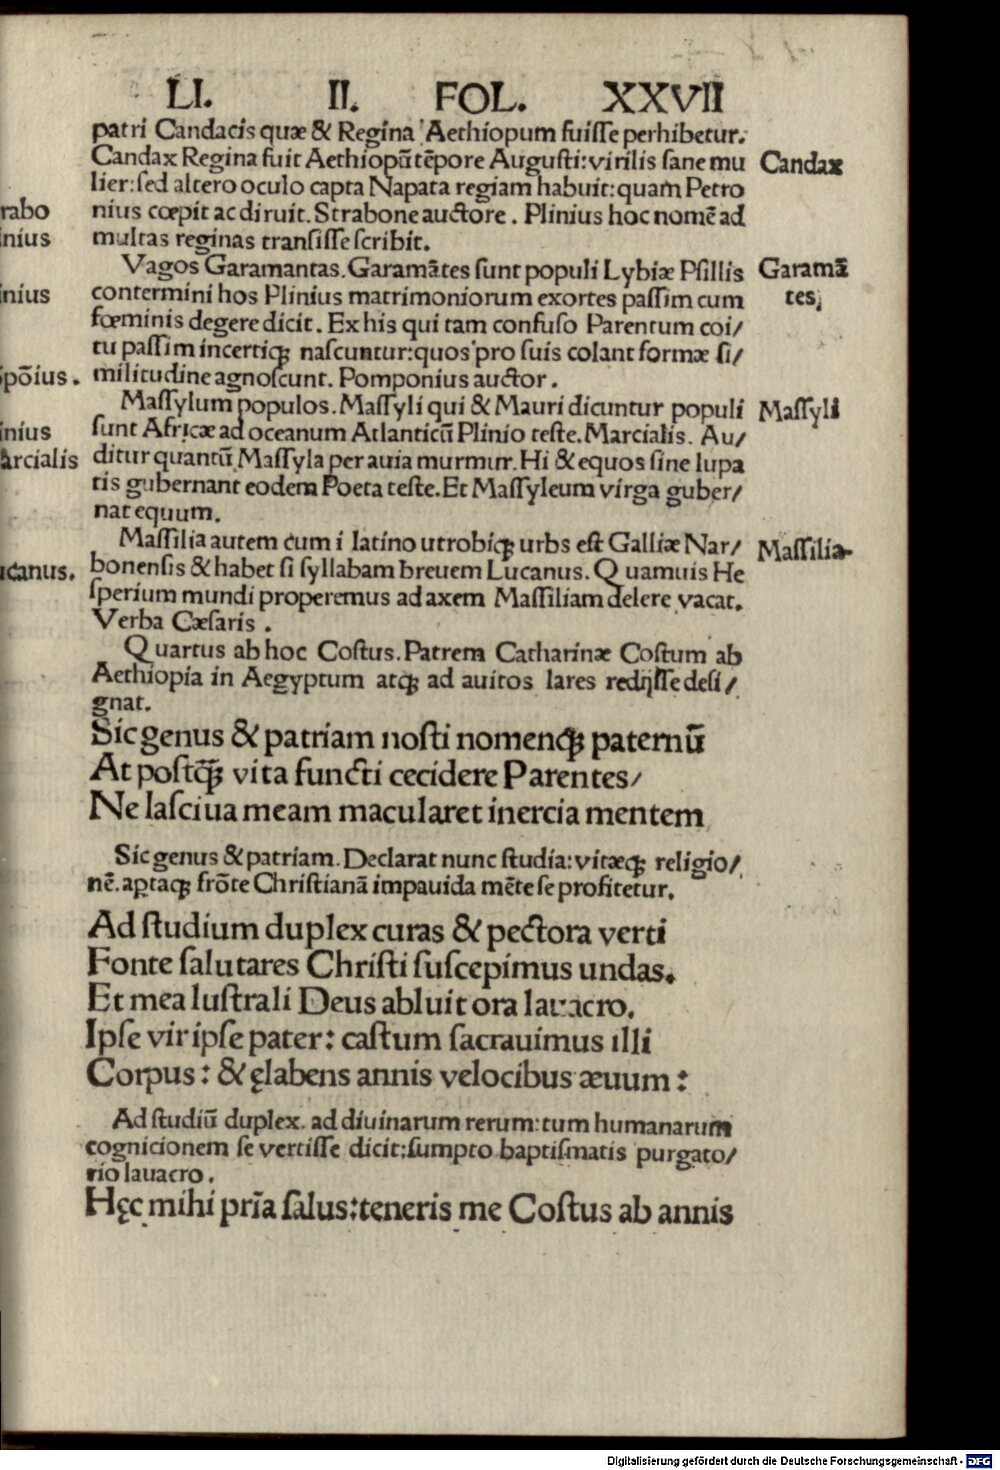 LI. II. FOL. XXVII
patri Candacis quæ & Regina Aethiopum fuiſſe perhibetur.
Candax Regina fuit Aethiopũ tẽpore Auguſti: virilis ſane mu
Candax
lier: ſed altero oculo capta Napata regiam habuit: quam Petro
rabo
nius cœpit ac diruit. Strabone auctore. Plinius hoc nomẽ ad
inius
multas reginas tranſiſſe ſcribit.
Vagos Garamantas. Garamãtes ſunt populi Lybiæ Pſillis
Garamã
inius
contermini hos Plinius matrimoniorum exortes paſſim cum
tes,
fœminis degere dicit. Ex his qui tam confuſo Parentum coi/
tu paſſim incertiqꝫ naſcuntur: quos pro ſuis colant formæ ſi/
põius.
militudine agnoſcunt. Pomponius auctor.
Maſſylum populos. Maſſyli qui & Mauri dicuntur populi
Maſſyli
inius
ſunt Africæ ad oceanum Atlanticũ Plinio teſte. Marcialis. Au/
arcialis
ditur quantũ Maſſyla per auia murmur. Hi & equos ſine lupa
tis gubernant eodem Poeta teſte. Et Maſſyleum virga guber/
nat equum.
Maſſilia autem cum i latino utrobiqꝫ urbs eſt Galliæ Nar/
Maſſilia
ucanus.
bonenſis & habet ſi ſyllabam breuem Lucanus. Quamuis He
ſperium mundi properemus ad axem Maſſiliam delere vacat.
Verba Cæſaris.
Quartus ab hoc Coſtus. Patrem Catharinæ Coſtum ab
Aethiopia in Aegyptum atqꝫ ad auitos lares redijſſe deſi/
gnat.
Sic genus & patriam noſti nomenqꝫ paternũ
At poſtq̃ꝫ vita functi cecidere Parentes/
Ne laſciua meam macularet inercia mentem
Sic genus & patriam. Declarat nunc ſtudia: vitæqꝫ religio/
nẽ. aꝑtaqꝫ frõte Chriſtianã impauida mẽte ſe profitetur.
Ad ſtudium duplex curas & pectora verti
Fonte ſalutares Chriſti ſuſcepimus undas.
Et mea luſtrali Deus abluit ora lauacro.
Ipſe vir ipſe pater: caſtum ſacrauimus illi
Corpus: & ęlabens annis velocibus æuum:
Ad ſtudiũ duplex. ad diuinarum rerum: tum humanarum
cognicionem ſe vertiſſe dicit: ſumpto baptiſmatis purgato/
rio lauacro.
Hęc mihi prĩa ſalus: teneris me Coſtus ab annis
Digitalisierung gefördert durch die Deutsche Forschungsgemeinschaft - DFG